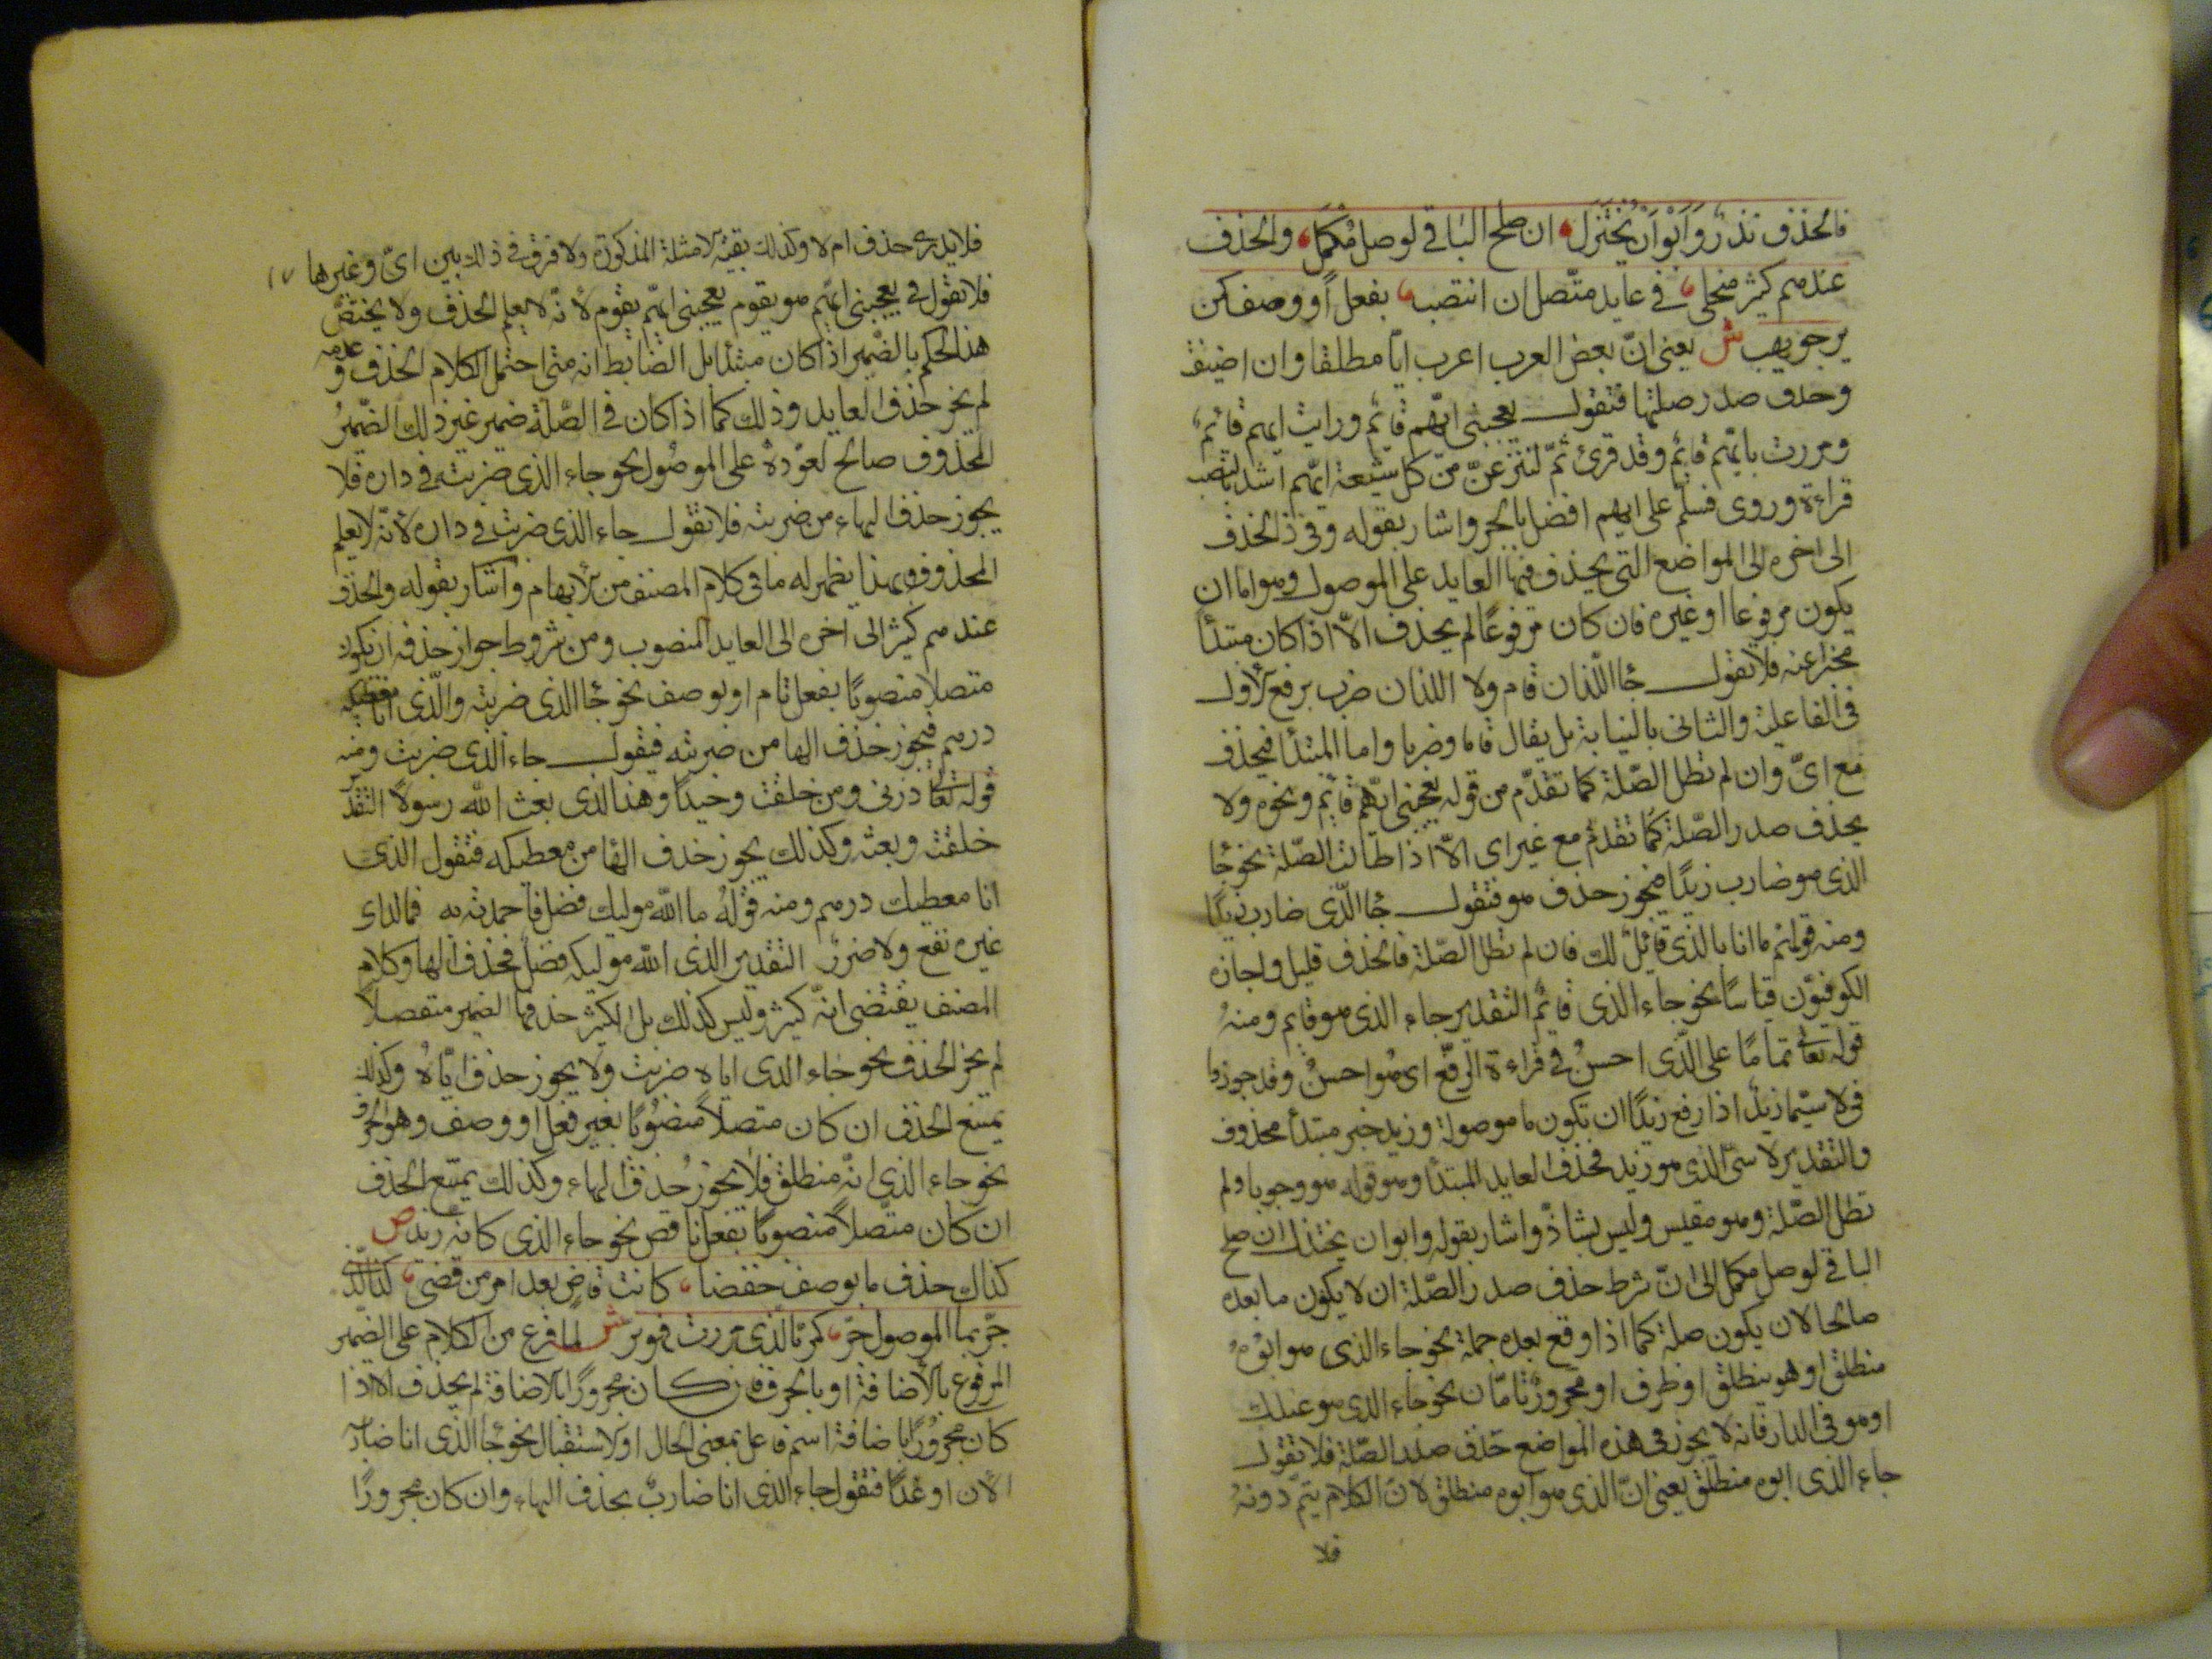 فالحذف نذر وابوا ان يختزل ان صلح الباقي لوصل مكمل والحذف
عندهم كثير منجلي في عايد متصل ان انتصب بفعل او وصف كمن
يرجو يهب ش يعني ان بعض العرب اعرب ايا مطلقا وان اضيف
وحذف صدر صلتها فتقول يعجبني ايهم قائم ورايت ايهم قائم
ومررت بايهم قائم وقد قرئ ثم لننزعن من كل شيعة ايهم اشد بالنصب
قراءة وروى فسلم على ايهم افضل بالجر واشار بقوله وفي ذا الحذف
الى اخره الى المواضع التي يحذف فيها العايد على الموصول وهو اما ان
يكون مرفوعا او غيره فان كان مرفوعا لم يحذف الا اذا كان مبتدأ
مخبرا عنه فلا تقول جا اللذان قام ولا اللذان ضرب برفع الاول
في الفاعلية والثاني بالنيابة بل يقال قاما وضربا واما المبتدأ فيحذف
مع اي وان لم تطل الصلة كما تقدم من قوله يعجبني ايهم قائم ونحوه ولا
يحذف صدر الصلة كما تقدم مع غير اي الا اذا طالت الصلة نحو جا
الذي هو ضارب زيدا فيجوز حذف هو فتقول جا الذي ضارب زيدا
ومنه قولهم ما انا بالذي قائل لك فان لم تطل الصلة فالحذف قليل واجازه
الكوفيون قياسا نحو جاء الذي قائم التقدير جاء الذي هو قايم ومنه
قوله تعالى تماما على الذي احسن في قراءة الرفع اى هو احسن وقد جوزوا
في لا سيما زيد اذا رفع زيدا ان تكون ما موصولة وزيد خبر مبتدأ محذوف
والتقدير لا سي الذي هو زيد فحذف العايد المبتدا وهو قوله هو وجوبا ولم
تطل الصلة وهو مقيس وليس بشاذ واشار بقوله وابوا ان يختزل ان صلح
الباقي لوصل مكمل الى ان شرط حذف صدر الصلة ان لا يكون ما بعده
صالحا لان يكون صلة كما اذا وقع بعده جملة نحو جاء الذي هو ابوه
منطلق او هو ينطلق او ظرف او مجرور تامان نحو جاء الذي هو عندك
او هو في الدار فانه لا يجوز في هذه المواضع حذف صدر الصلة فلا تقول
جاء الذي ابوه منطلق يعني ان الذي هو ابوه منطلق لان الكلام يتم دونه
فلا
١٧
فلا يدرى حذف ام لا وكذلك بقية الامثلة المذكورة ولا فرق في ذلك بين اي وغيرها
فلا تقول في يعجبني ايهم هو يقوم يعجبني ايهم يقوم لانه لا يعلم الحذف ولا يختص
هذا الحكم بالضمير اذا كان مبتدأ بل الضابط انه متى احتمل الكلام الحذف وعدمه
لم يجز حذف العايد وذلك كما اذا كان في الصلة ضمير غير ذلك الضمير
المحذوف صالح لعوده على الموصول نحو جاء الذي ضربته في داره فلا
يجوز حذف الهاء من ضربته فلا تقول جاء الذي ضربت في داره لانه لا يعلم
المحذوف وبهذا يظهر له ما في كلام المصنف من الابهام واشار بقوله والحذف
عندهم كثير الى اخره الى العايد المنصوب ومن شروط جواز حذفه ان يكون
متصلا منصوبا بفعل تام او بوصف نحو جا الذي ضربته والذي انا معطيكه
درهم فيجوز حذف الها من ضربته فيقول جاء الذي ضربت ومنه
قوله تعا ذرني ومن خلقت وحيدا وهذا الذي بعث الله رسولا التقدير
خلقته وبعثه وكذلك يجوز حذف الها من معطيكه فتقول الذي
انا معطيك درهم ومنه قوله ما الله موليك فضل فاحمدنه به فما لداى
غيره نفع ولا ضرر التقدير الذي الله موليكه فضل فحذف الها وكلام
المصنف يقتضي انه كثير وليس كذلك بل الكثير حذفها الضمير منفصلا
لم يجز الحذف نحو جاء الذي اياه ضربت ولا يجوز حذف اياه وكذلك
يمتنع الحذف ان كان متصلا منصوبا بغير فعل او وصف وهو الحرف
نحو جاء الذي انه منطلق فلا يجوز حذف الهاء وكذلك يمتنع الحذف
ان كان متصلا منصوبا بفعل ناقص نحو جاء الذي كانه زيد ص
كذاك حذف ما بوصف خفضا كانت قاض بعد امر من قضى كذا الذي
جر بما الموصول جر كمر بالذي مررت فهو بر ش لما فرغ من الكلام على الضمير
المرفوع بالاضافة او بالحرف فان كان مجرورا بالاضافة لم يحذف الا اذا
كان مجرورا باضافة اسم فاعل بمعنى الحال او الاستقبال نحو جا الذي انا ضاربه
الآن او غدا فتقول جاء الذي انا ضارب بحذف الهاء وان كان مجرورا